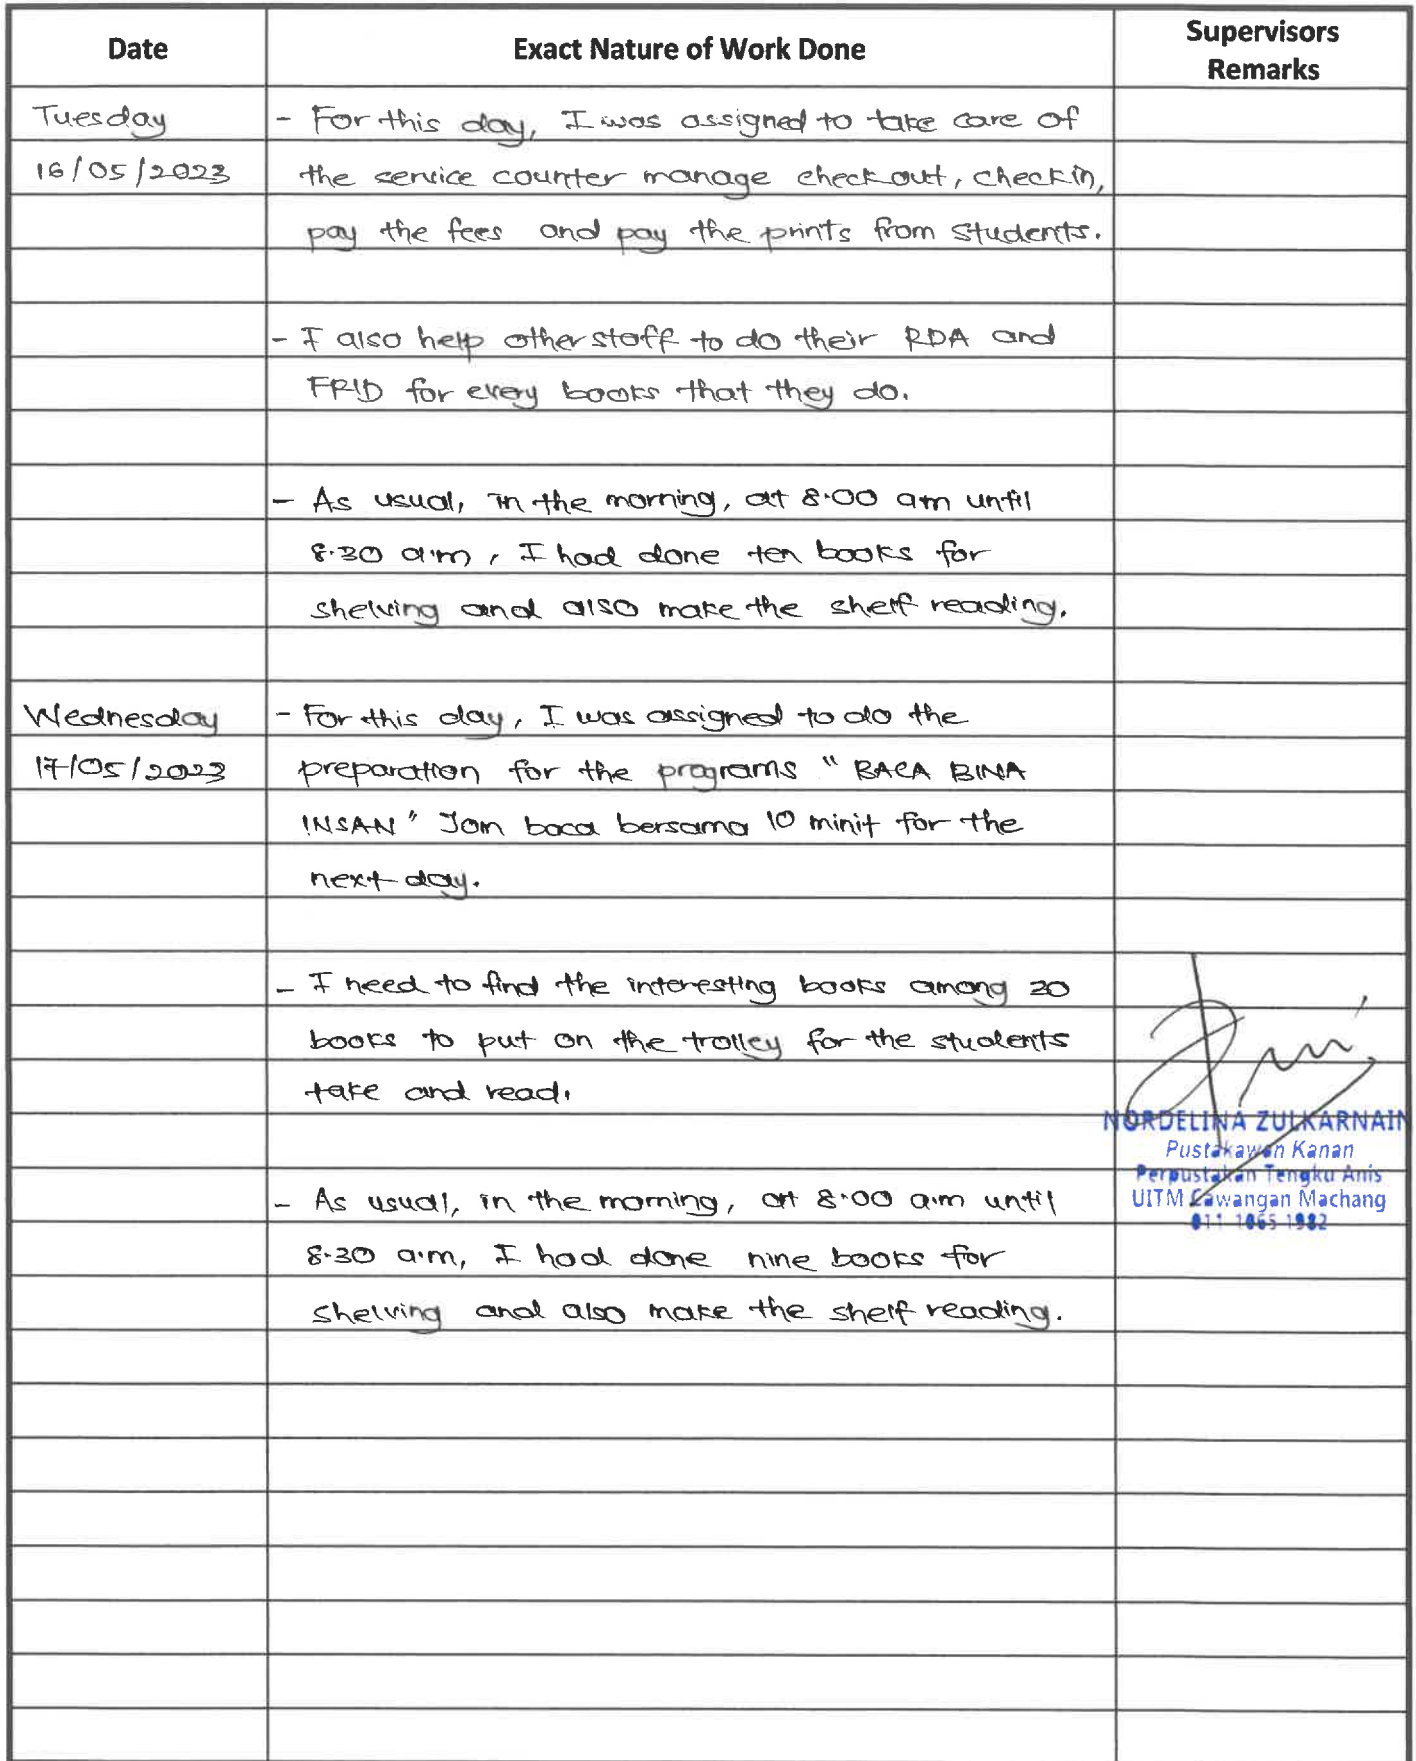 Date Exact Nature of Work Done Supervisors Remarks
Tuesday - For this day, I was assigned to take care of
16/05/2023 the service counter manage check out, check in,
pay the fees and pay the prints from students.
- I also help other staff to do their RDA and
FRID for every books that they do.
- As usual, in the morning, at 8.00 am until
8.30 a.m, I had done ten books for
shelving and also make the shelf reading.
Wednesday - For this day, I was assigned to do the
17/05/2023 preparation for the programs " BACA BINA
INSAN " Jom baca bersama 10 minit for the
next day.
- I need to find the interesting books among 20
books to put on the trolley for the students
take and read.
NORDELINA ZULKARNAIN
Pustakawan Kanan
Perpustakan Tengku Anis
- As usual, in the morning, at 8.00 a.m until
UITM Cawangan Machang
011 1065 1982
8.30 a.m, I had done nine books for
shelving and also make the shelf reading.